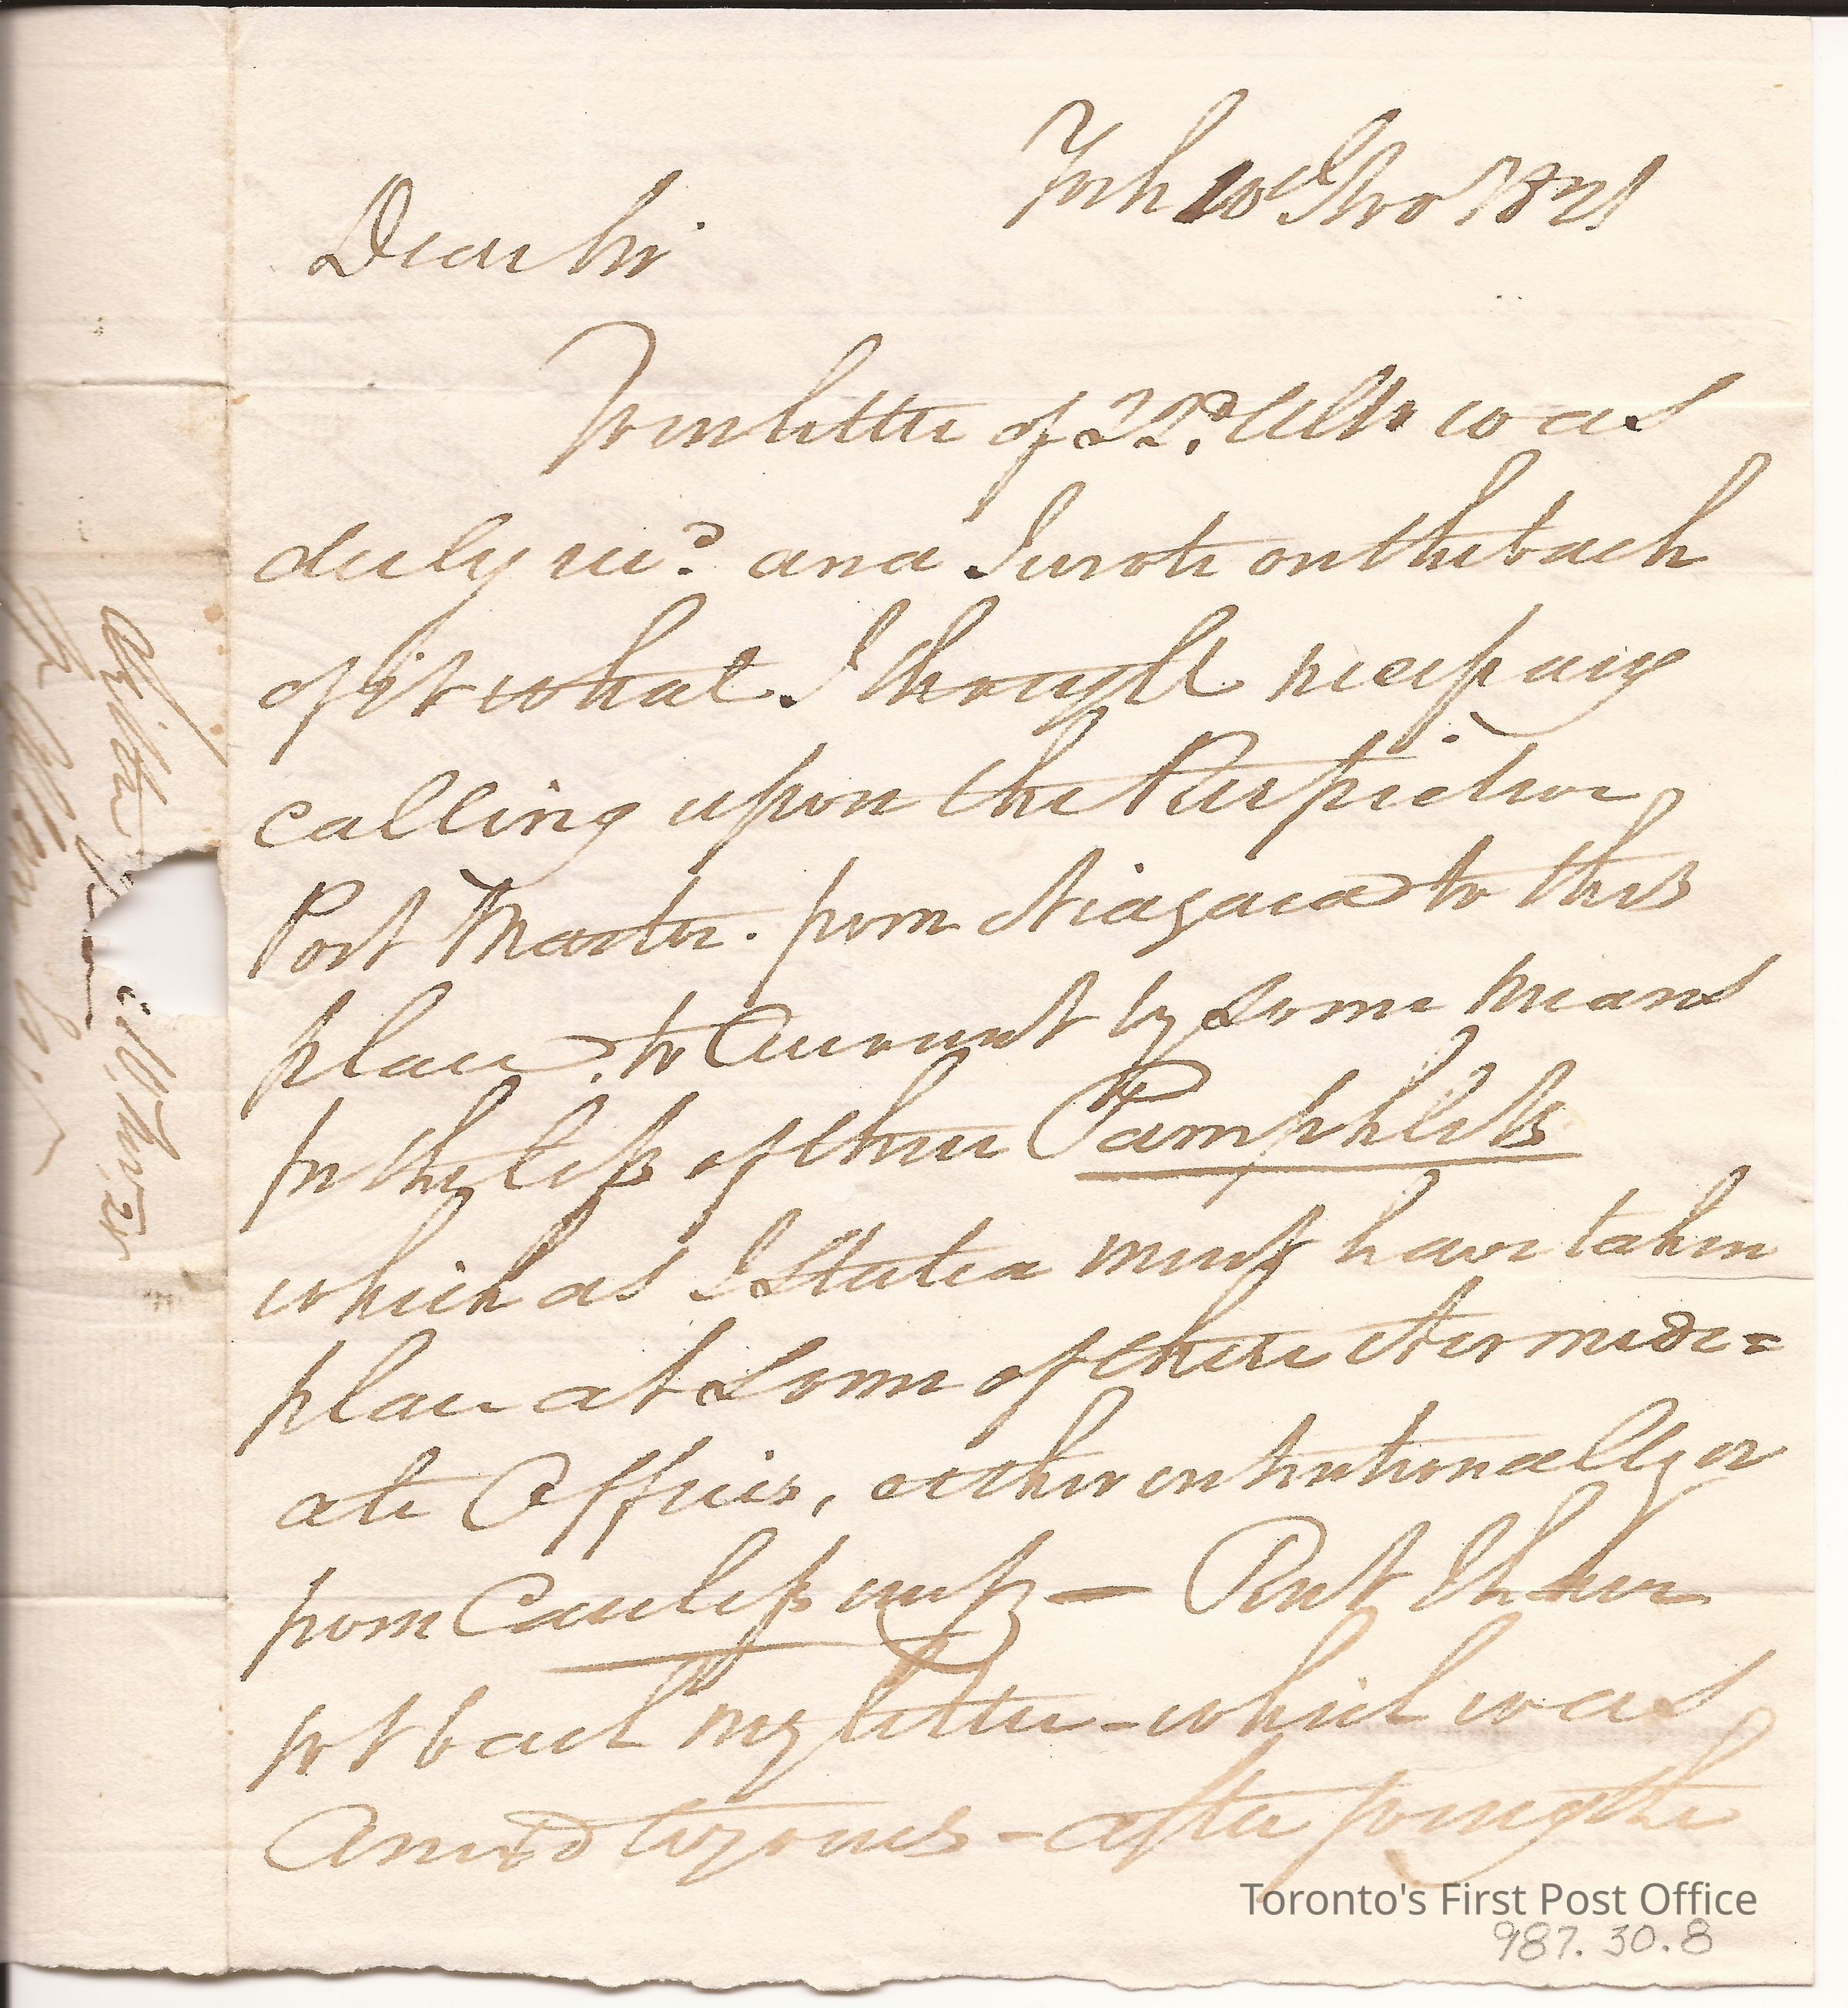 York 10th Nov 1821
Dear Sir
Your letter of 22d. Ulto was
duly recd. and I wrote on the back
of it what I thought necessary
calling upon the Respective
Post Master. from Niagara to this
place. to Account by some means
for the loss of these Pamphlets
which as I stated must have taken
place at some of these intermedi=
ate Offices, either intentionally or
from Carelessness — But I have
not back my letter - which was
Annexd to yours - after going the
Toronto's First Post Office
987. 30. 8